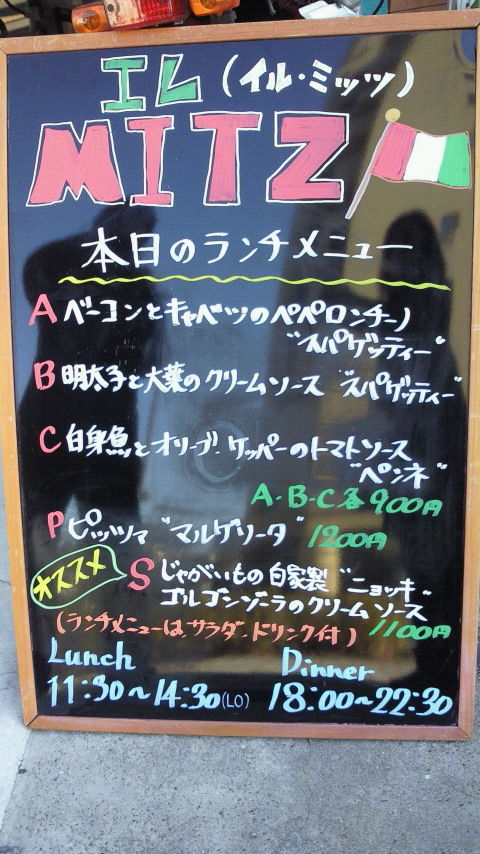 エレ (イル・ミッツ)
MITZ
本日のランチメニュー
A ベーコンとキャベツのペペロンチーノ
"スパゲッティー"
B 明太子と大葉のクリームソース "スパゲッティー"
C 白身魚とオリーブ.ケッパーのトマトソース
"ペンネ"
A・B・C各900円
P ピッツァ "マルゲリータ" 1200円
オススメ S じゃがいもの自家製 "ニョッキ"
ゴルゴンゾーラのクリームソース
(ランチメニューは、サラダ、ドリンク付) 1100円
Lunch Dinner
11:30~14:30(LO) 18:00~22:30